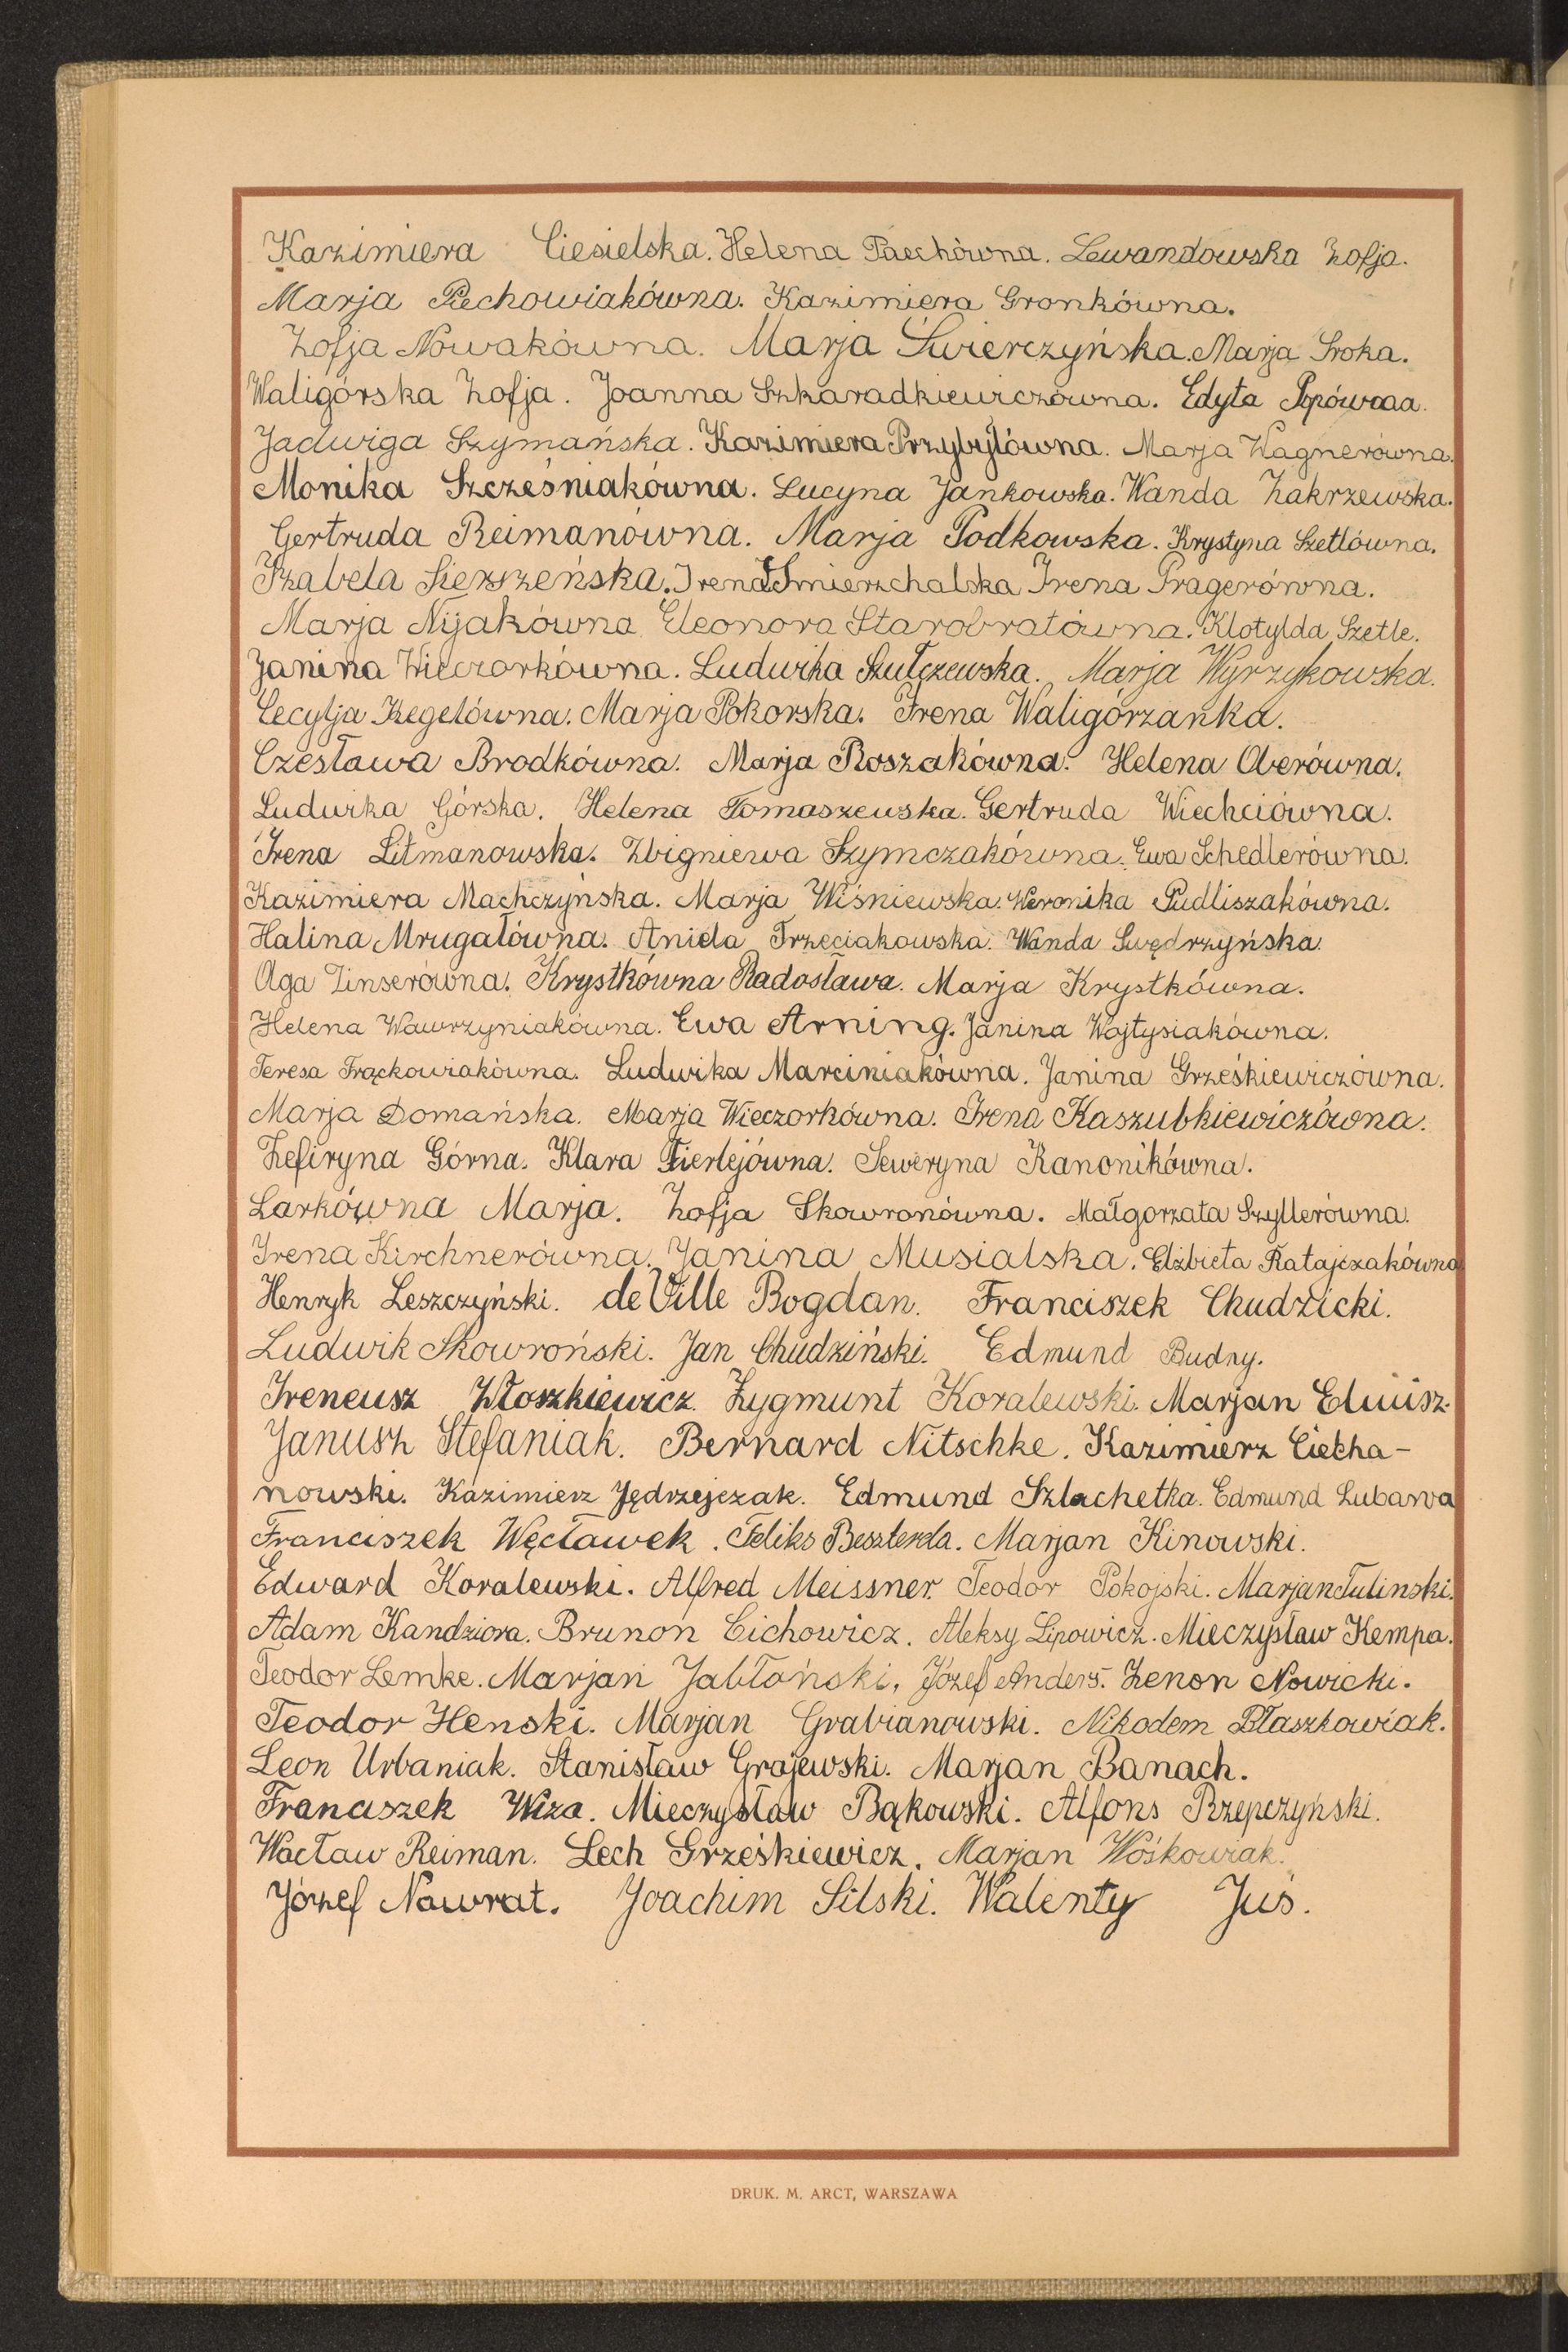 Kazimiera Ciesielska. Helena Paechówna. Lewandowska Zofja.
Marja Piechowiakówna. Kazimiera Gronkówna.
Zofja Nowakówna. Marja Świerczyńska. Marja Sroka.
Waligórska Zofja. Joanna Szkaradkiewiczówna. Edyta
Jadwiga Szymańska. Kazimiera Przybyłówna. Marja Wagnerówna.
Monika Szcześniakówna. Lucyna Jankowska. Wanda Zakrzewska.
Gertruda Reimanówna. Marja Podkowska. Krystyna Szetlówna.
Izabela Sierszeńska. Irena Śmierzchalska Irena Pragerówna.
Marja Nijakówna Eleonora Starobratówna. Klotylda Szetle.
Janina Wieczorkówna. Ludwika Szulczewska. Marja Wyrzykowska.
Cecylja Kegelówna. Marja Pokorska. Irena Waligórzanka.
Czesława Brodkówna. Marja Roszakówna. Helena Oberówna.
Ludwika Górska. Helena Tomaszewska. Gertruda Wiechciówna.
Irena Litmanowska. Zbigniewa Szymczakówna. Ewa Schedlerówna.
Kazimiera Machczyńska. Marja Wiśniewska. Weronika Pudliszakówna.
Halina Mrugałówna. Aniela Trzeciakowska. Wanda Swędrzyńska
Aga Zinserówna. Krystkówna Radosława. Marja Krystkówna.
Helena Wawrzyniakówna. Ewa Arning. Janina Wojtysiakówna.
Teresa Frąckowiakówna. Ludwika Marciniakówna. Janina Grześkiewiczówna.
Marja Domańska. Marja Wieczorkówna. Irena Kaszubkiewiczówna.
Zefiryna Górna. Klara Fierlejówna. Seweryna Kanonikówna.
Larkówna Marja. Zofja Skowronówna. Małgorzata Szyllerówna.
Irena Kirchnerówna. Janina Musialska. Elżbieta Ratajczakówna
Henryk Leszczyński. de Ville Bogdan. Franciszek Chudzicki.
Ludwik Skowroński. Jan Chudziński. Edmund Budny.
Ireneusz Włoszkiewicz. Zygmunt Koralewski. Marjan
Janusz Stefaniak. Bernard Nitschke. Kazimierz Ciecha-
nowski. Kazimierz Jędrzejczak. Edmund Szlachetka. Edmund Lubawa
Franciszek Węcławek. Feliks Beszterda. Marjan Kinowski.
Edward Koralewski. Alfred Meissner. Teodor Pokojski. Marjan Tulinski.
Adam Kandziora. Brunon Cichowicz. Aleksy Lipowicz. Mieczysław Kempa.
Teodor Lemke. Marjan Jabłoński. Józef Anders. Zenon Nowicki.
Teodor Henski. Marjan Grabianowski. Nikodem Błaszkowiak.
Leon Urbaniak. Stanisław Grajewski. Marjan Banach.
Franciszek Wiza. Mieczysław Bąkowski. Alfons Rzepczyński.
Wacław Reiman. Lech Grześkiewicz. Marjan Wośkowiak.
Józef Nawrat. Joachim Silski. Walenty Juś.
DRUK. M. ARCT, WARSZAWA